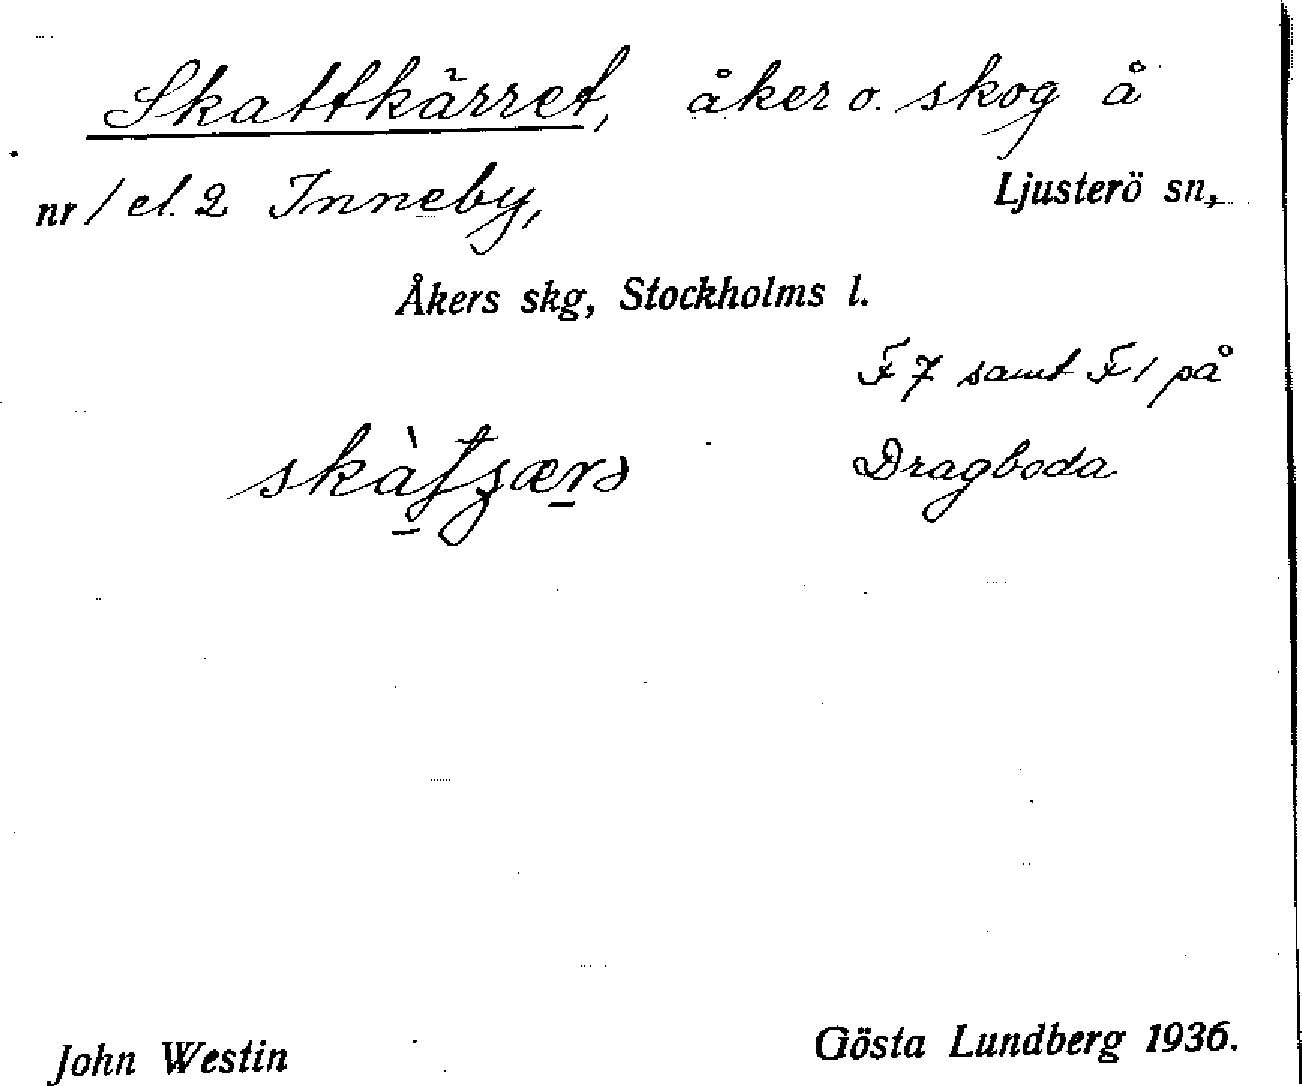 Skattkärret, åker o. skog å
nr 1 el. 2 Inneby, Ljusterö sn,
Åkers skg, Stockholms l.
F 7 samt F 1 på
Dragboda
John Westin Gösta Lundberg 1936.